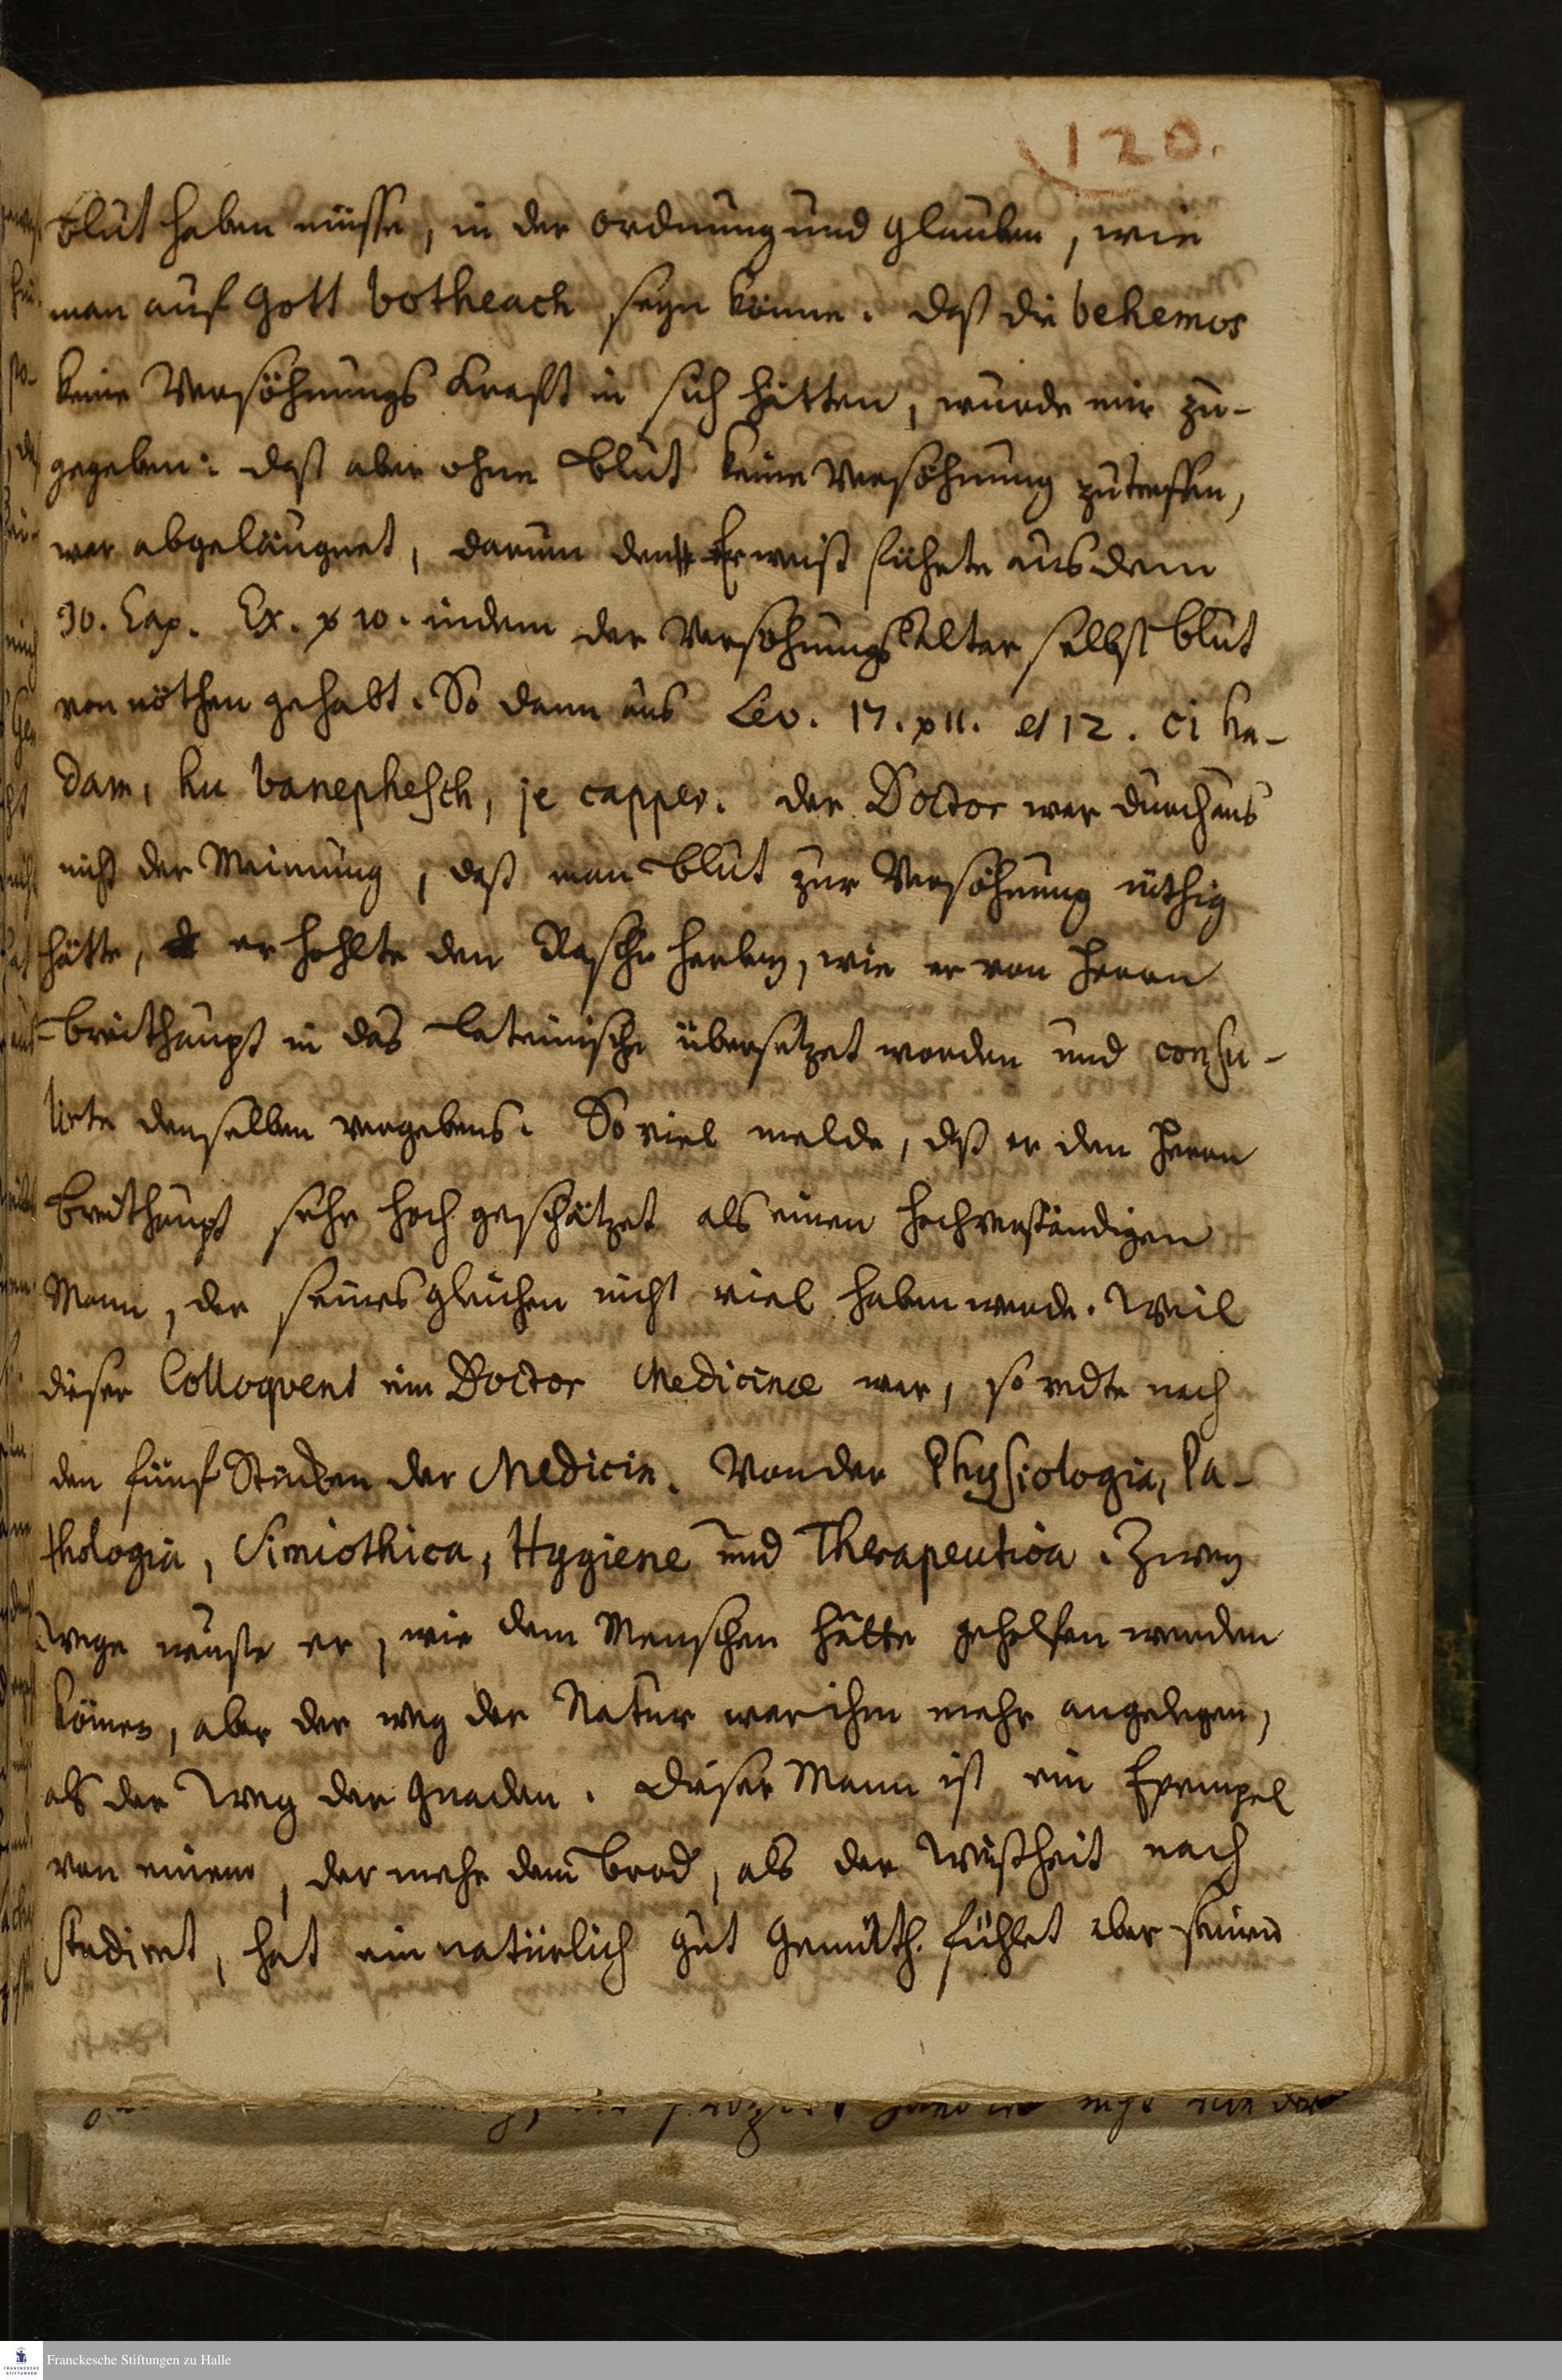 120.
blut haben müsse, in der ordnung und glauben, wie
man auf Gott botheach seyn könne. daß die behemos
keine Versöhnungs Krafft in sich hätten, wurde mir zu-
gegeben: daß aber ohne blut keine Versöhnung zutreffen,
war abgeläugnet, darum den Erweiß führte aus dem
30. Cap. Ex. v 10. indem der Versohnungs Altar selbst blut
von nöthen gehabt. So dann aus Lev. 17. v 11. et 12. ci ha-
dam, hu banephesch, je capper. der Doctor war durchaus
nicht der Meinung, daß man blut zur Versöhnung nöthig
hätte, er hohlte den Raschi herbey, wie er von Herrn
Breithaupt in das Lateinische übersetzet worden und consu-
lirte denselben vergebens. So viel melde, daß er den Herrn
Breithaupt sehr hoch geschätzet als einen hochverständigen
Mann, der seines gleichen nicht viel haben werde. Weil
dieser Colloqvent ein Doctor Medicinæ war, so redte nach
den fünf Stücken der Medicin. Von der Physiologia, Pa-
thologia, Simiothica, Hygiene und Therapeutica. Zwey
Wege wuste er, wie dem Menschen hätte geholfen werden
können, aber der weg der Natur war ihm mehr angelegen,
als der Weg der Gnaden. Dieser Mann ist ein Exempel
von einem, der mehr dem brod, als der Weißheit nach
studiret, hat ein natürlich gut Gemüth. fühlet aber seinen
Franckesche Stiftungen zu Halle